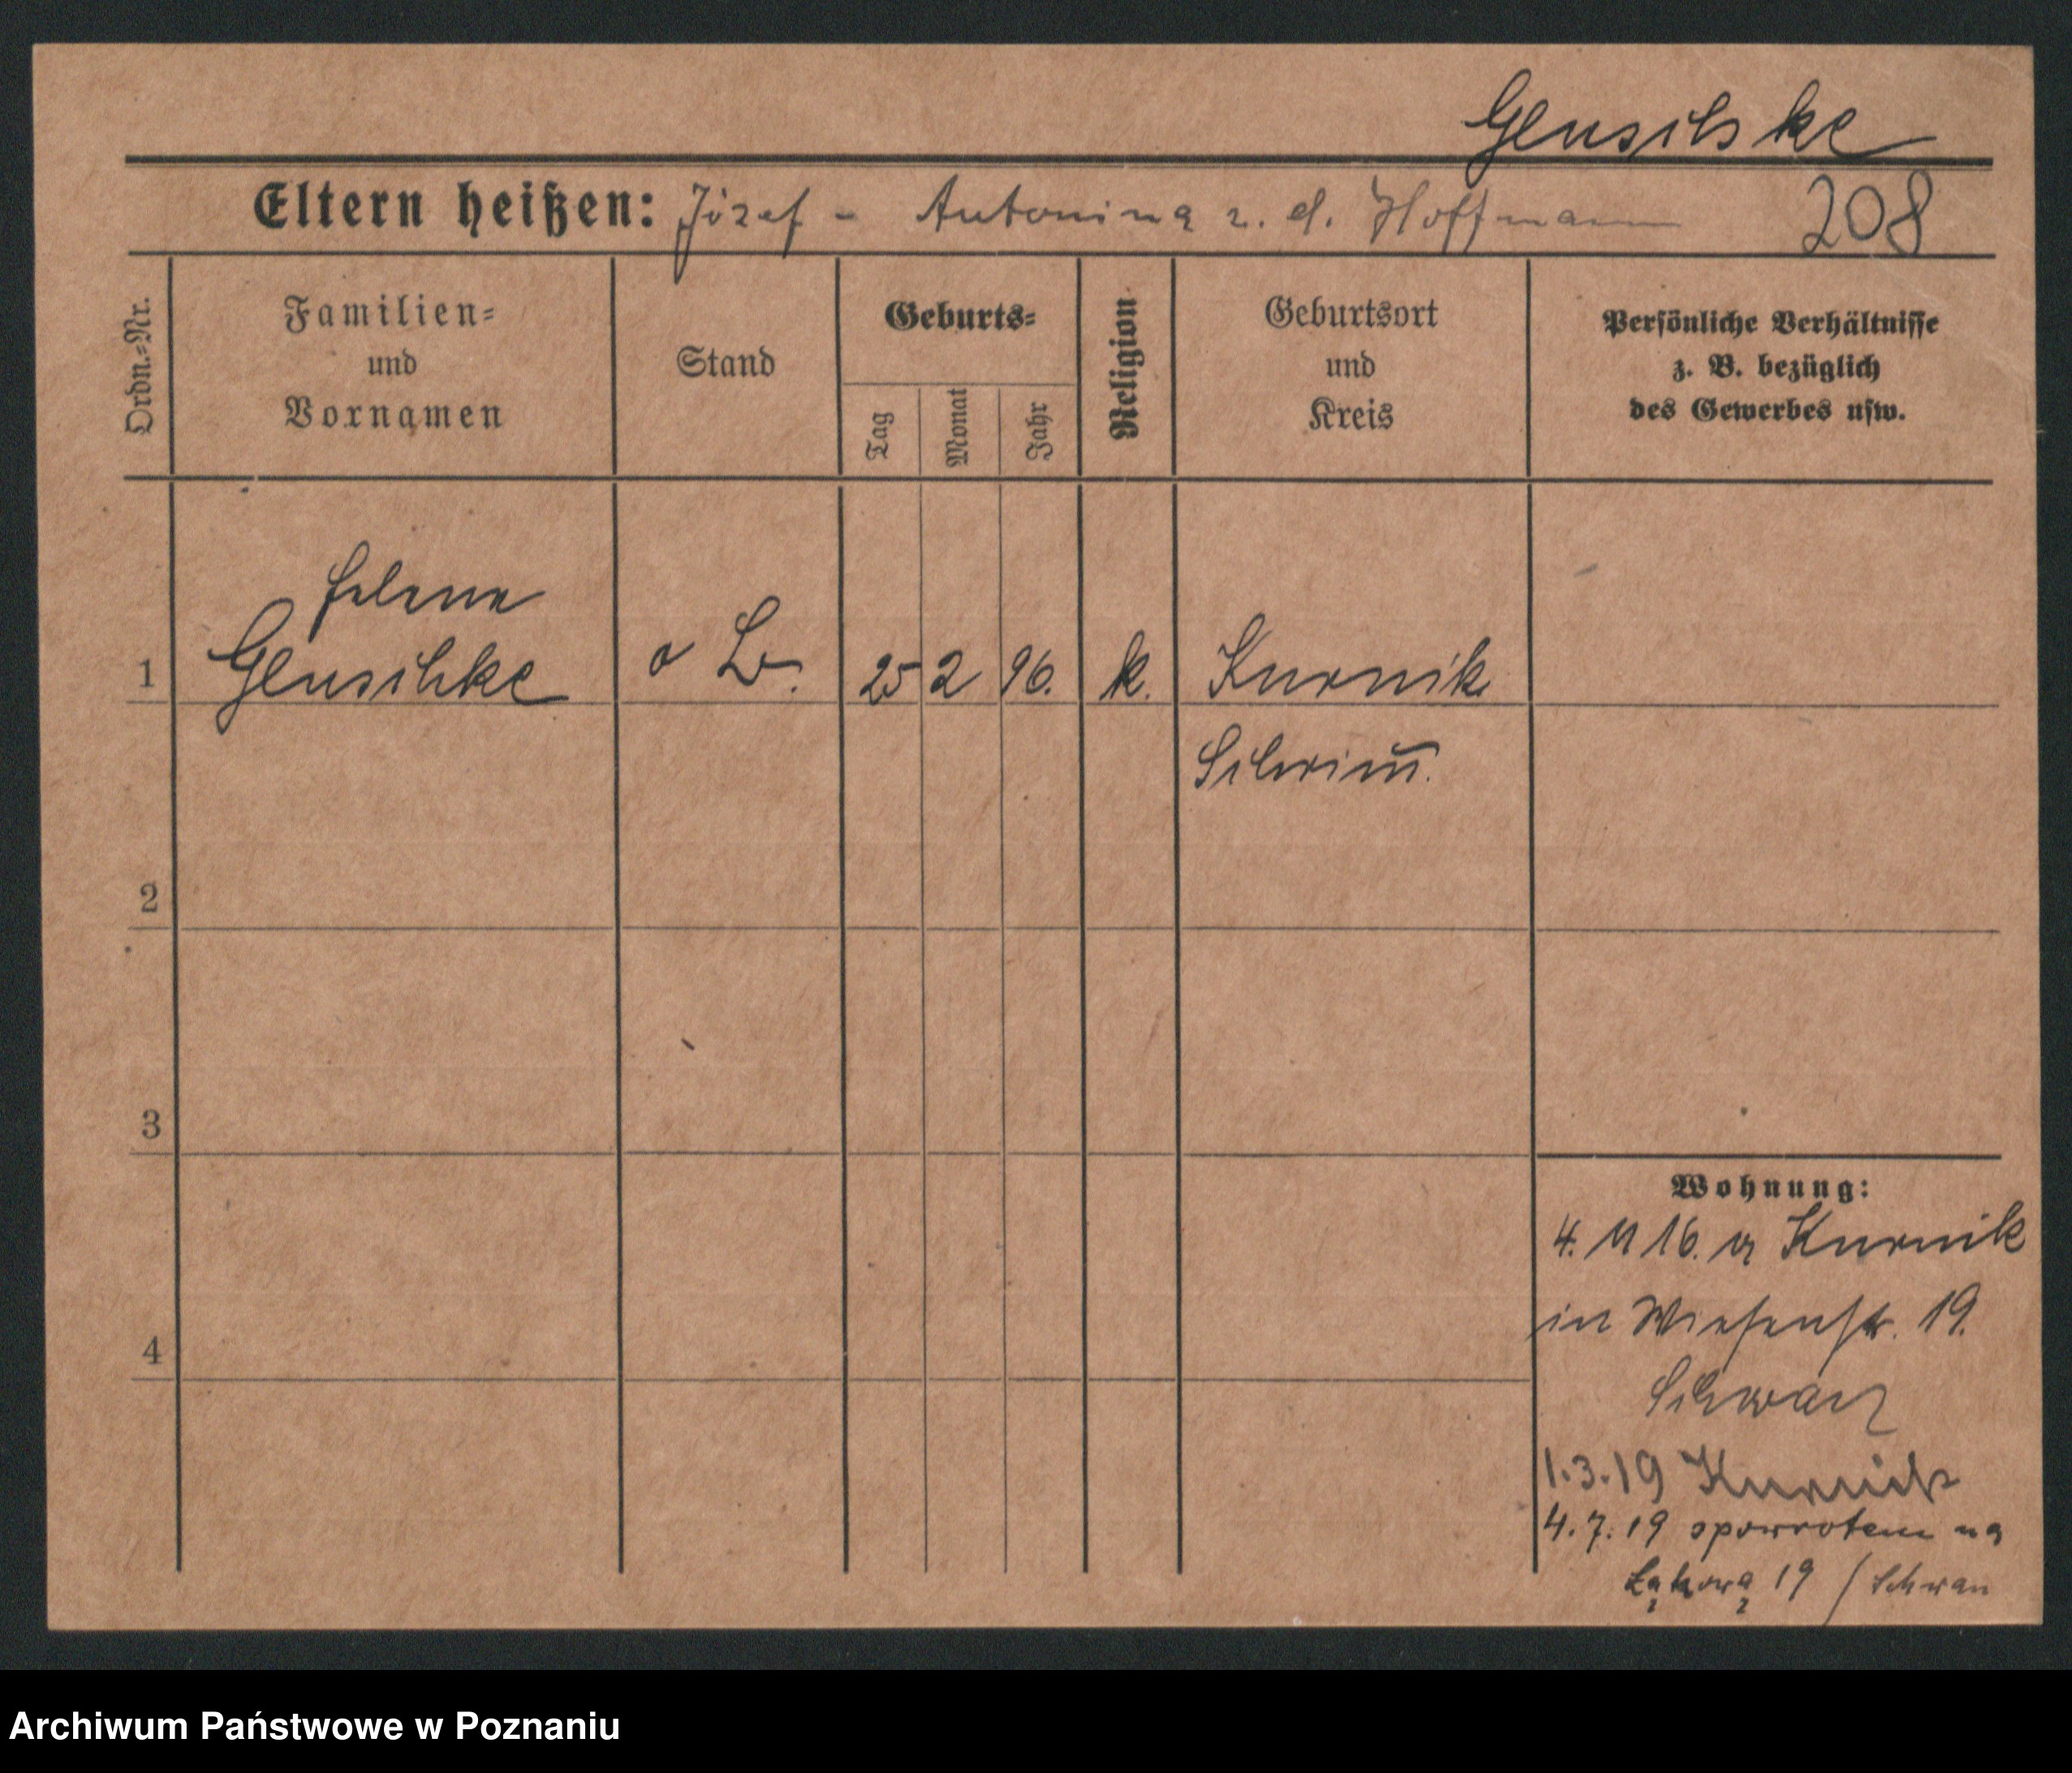 Gluschke
Eltern heißen: Józef - Antonina z. d. Hoffmann 208
Ordn.-Nr.
Familien-
und
Vornamen
Stand
Geburts-
Tag
Monat
Jahr
Religion
Geburtsort
und
Kreis
Persönliche Verhältnisse
z. B. bezüglich
des Gewerbes usw.
Helene
1 Gluschke 25 2 96. k. Kurnik
Schrim̄.
2
3
4
Wohnung:
4. 11 16. Kurnik
in Wiesenstr. 19.
Schwarz
1.3.19 Kurnick
4.7.19 spowrotem na
Łąkową 19 / Schwarz
Archiwum Państwowe w Poznaniu